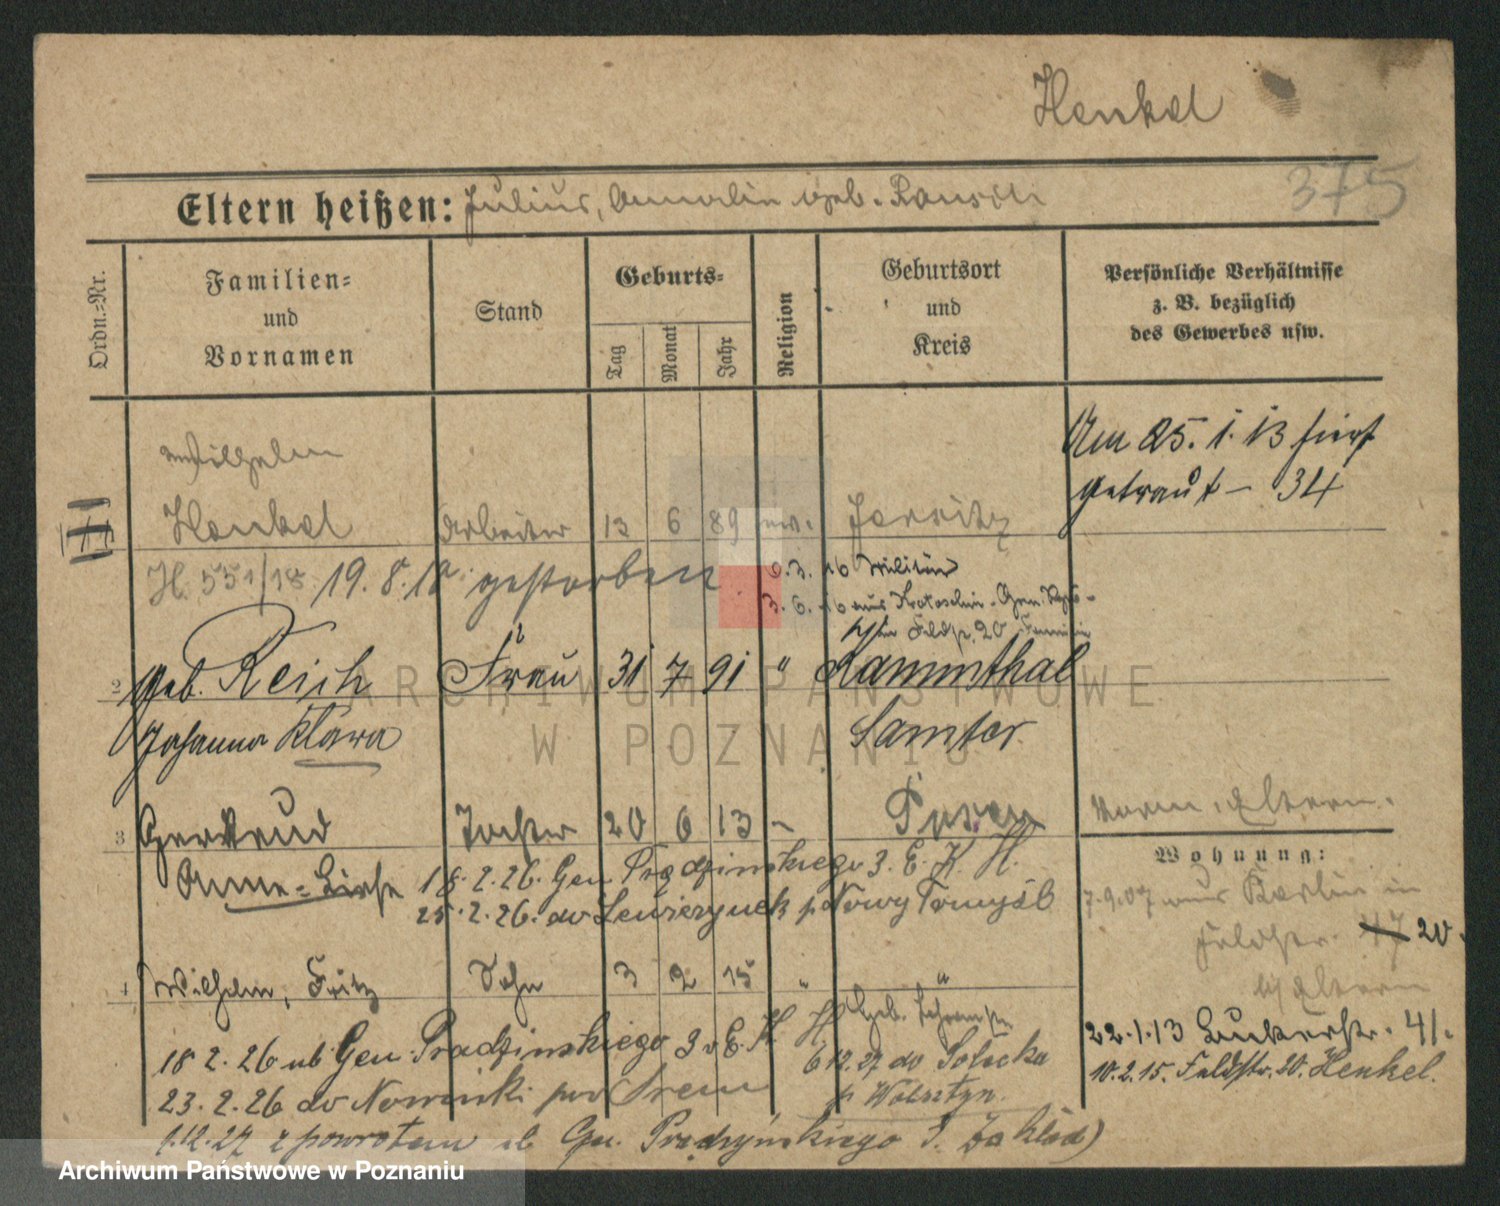 Henkel
375
Eltern heißen: Julius, geb. Rausch
Ordn.=Nr.
Familien=
und
Vornamen
Stand
Geburts=
Tag
Monat
Jahr
Religion
Geburtsort
und
Kreis
Persönliche Verhältnisse
z. B. bezüglich
des Gewerbes usw.
Am 25. 1. 13 hier
getraut – 34
Wilhelm
Henkel Arbeiter 13 6 89 ev. Jersitz
H. 551/18 19. 8. 18 gestorben
3. 16 Militär
3. 6. 16 aus Krotoschin
Feldstr. 20
2 geb. Reich Frau 31 7 91 " Kammthal
Johanna Klara Samter
3 Gertrud Tochter 20 6 13 – Posen
Anna=Liese 18. 2. 26. Gen. Prądzinskiego 3. E. K. H.
25. 2. 26. do Lewiczynek p. Nowy Tomyśl
Eltern.
Wohnung:
7. 9. 07 aus Berlin in
Feldstr. 47 20.
bei Eltern
22. 1. 13 41.
10. 2. 15. Feldstr. 20. Henkel.
4 Wilhelm, Fritz Sohn 3 2 15 " "
18 2. 26 ul Gen. Pradzinskiego 3 E. K. H.
6 12. 27 do
p. Wolsztyn.
23. 2. 26 do Nowinki pow Śrem
1.12. 27 z powrotem ul Gen. Prądzyńskiego 3. Zakład)
ARCHIWUM PAŃSTWOWE
W POZNANIU
Archiwum Państwowe w Poznaniu